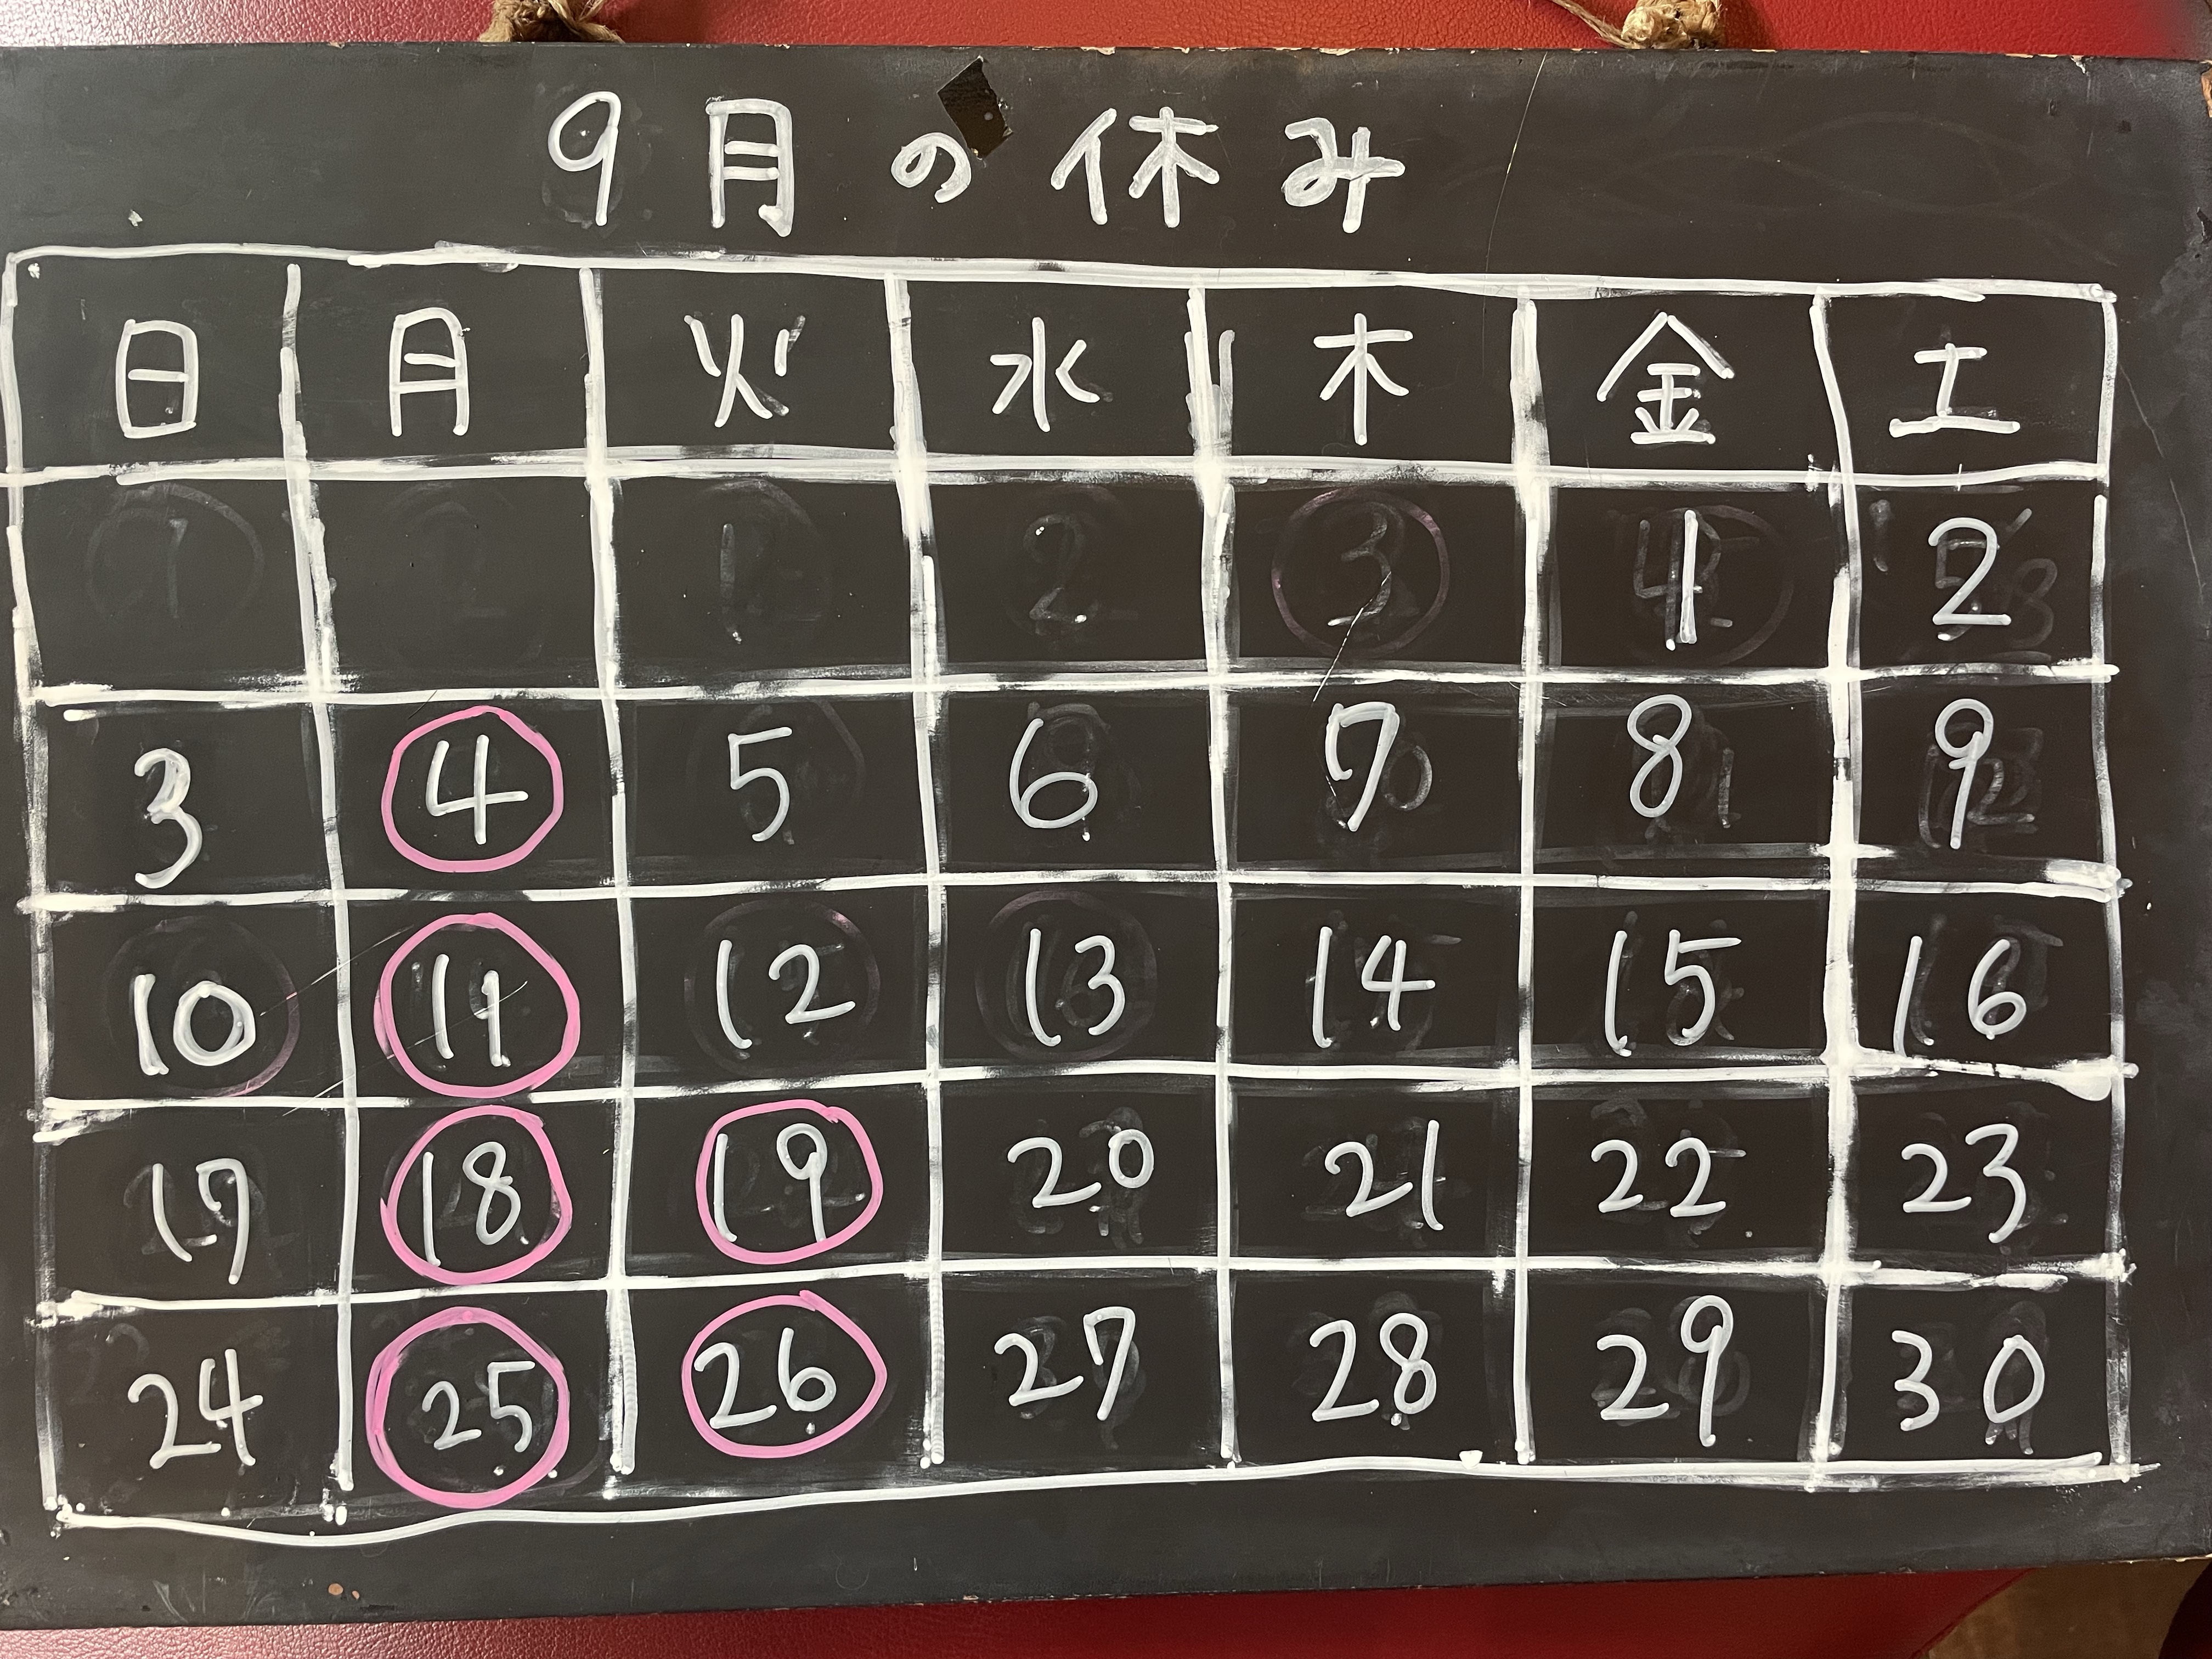 9月の休み
日 月 火 水 木 金 土
1 2
3 4 5 6 7 8 9
10 11 12 13 14 15 16
17 18 19 20 21 22 23
24 25 26 27 28 29 30